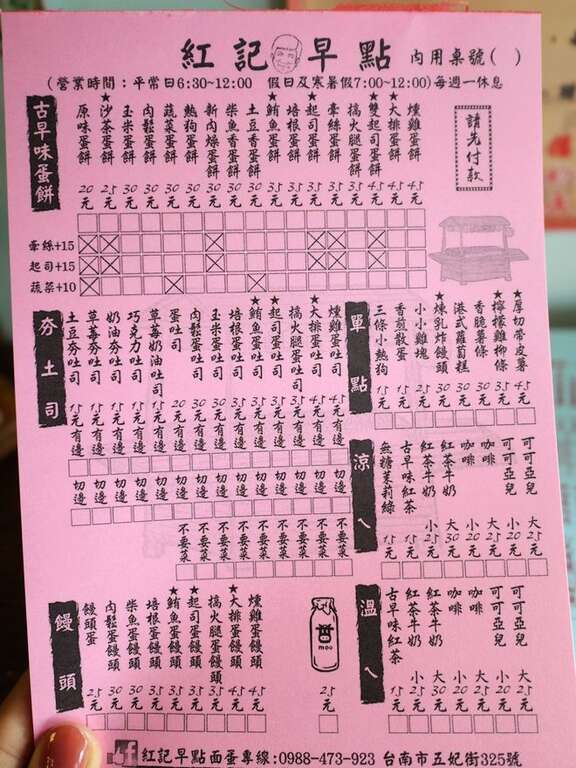 紅記早點 內用桌號( )
(營業時間：平常日6:30~12:00 假日及寒暑假7:00~12:00)每週一休息
請先付款
古早味蛋餅
原味蛋餅 20元
★沙茶蛋餅 25元
玉米蛋餅 30元
肉鬆蛋餅 30元
蔬菜蛋餅 30元
熱狗蛋餅 30元
新肉燥蛋餅 30元
柴魚香蛋餅 30元
土豆香蛋餅 30元
★鮪魚蛋餅 35元
培根蛋餅 35元
★起司蛋餅 35元
牽絲蛋餅 35元
搞火腿蛋餅 35元
★雙起司蛋餅 45元
★大排蛋餅 45元
燻雞蛋餅 45元
牽絲+15
起司+15
蔬菜+10
夯土司
土豆夯吐司 15元有邊 切邊
草莓夯吐司 15元有邊 切邊
奶油夯吐司 15元有邊 切邊
巧克力吐司 15元有邊 切邊
草莓奶油吐司 15元有邊 切邊
蛋吐司 20元有邊 切邊 不要菜
肉鬆蛋吐司 30元有邊 切邊 不要菜
玉米蛋吐司 30元有邊 切邊 不要菜
培根蛋吐司 35元有邊 切邊 不要菜
★鮪魚蛋吐司 35元有邊 切邊 不要菜
★起司蛋吐司 35元有邊 切邊 不要菜
搞火腿蛋吐司 35元有邊 切邊 不要菜
★大排蛋吐司 45元有邊 切邊 不要菜
燻雞蛋吐司 45元有邊 切邊 不要菜
單點
三條小熱狗 15元
香煎散蛋 15元
小小雞塊 25元
★煉乳炸饅頭 30元
港式蘿蔔糕 30元
香脆薯條 30元
★檸檬雞柳條 35元
★厚切帶皮薯 45元
涼ㄟ
無糖茉莉綠 15元
古早味紅茶 15元
紅茶牛奶 小 20元
紅茶牛奶 大 30元
咖啡 小 20元
咖啡 大 25元
可可亞兒 小 20元
可可亞兒 大 25元
饅頭
饅頭蛋 25元
肉鬆蛋饅頭 30元
柴魚蛋饅頭 30元
培根蛋饅頭 35元
★鮪魚蛋饅頭 35元
★起司蛋饅頭 35元
搞火腿蛋饅頭 35元
★大排蛋饅頭 45元
燻雞蛋饅頭 45元
moo
25元
溫ㄟ
古早味紅茶 15元
紅茶牛奶 小 20元
紅茶牛奶 大
咖啡 小 20元
咖啡 大 25元
可可亞兒 小 20元
可可亞兒 大 25元
f 紅記早點面蛋專線:0988-473-923 台南市五妃街325號